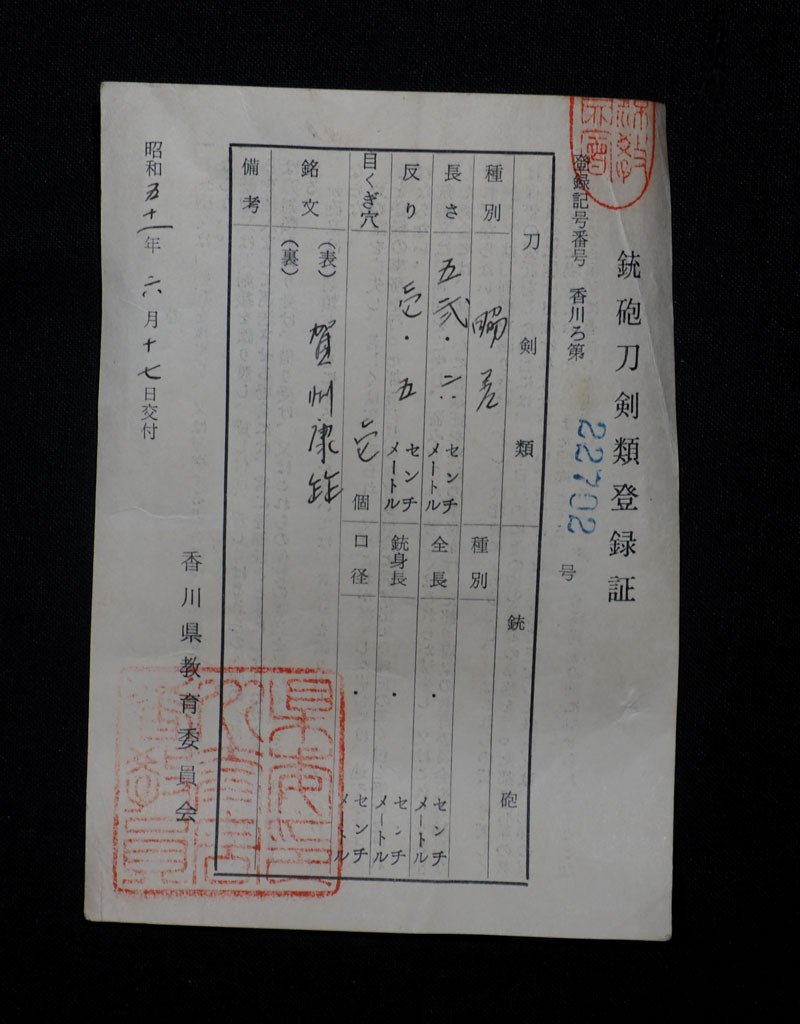 銃砲刀剣類登録証
登録記号番号 香川ろ第 22702 号
刀剣類
種別 脇差
長さ 五弐・六 センチメートル
反り 壱・五 センチメートル
目くぎ穴 壱 個
銘文 (表) 賀州康
(裏)
備考
銃砲
種別
全長 ・ センチメートル
銃身長 ・ センチメートル
口径 ・ センチメートル
昭和五十一年六月十七日交付
香川県教育委員会